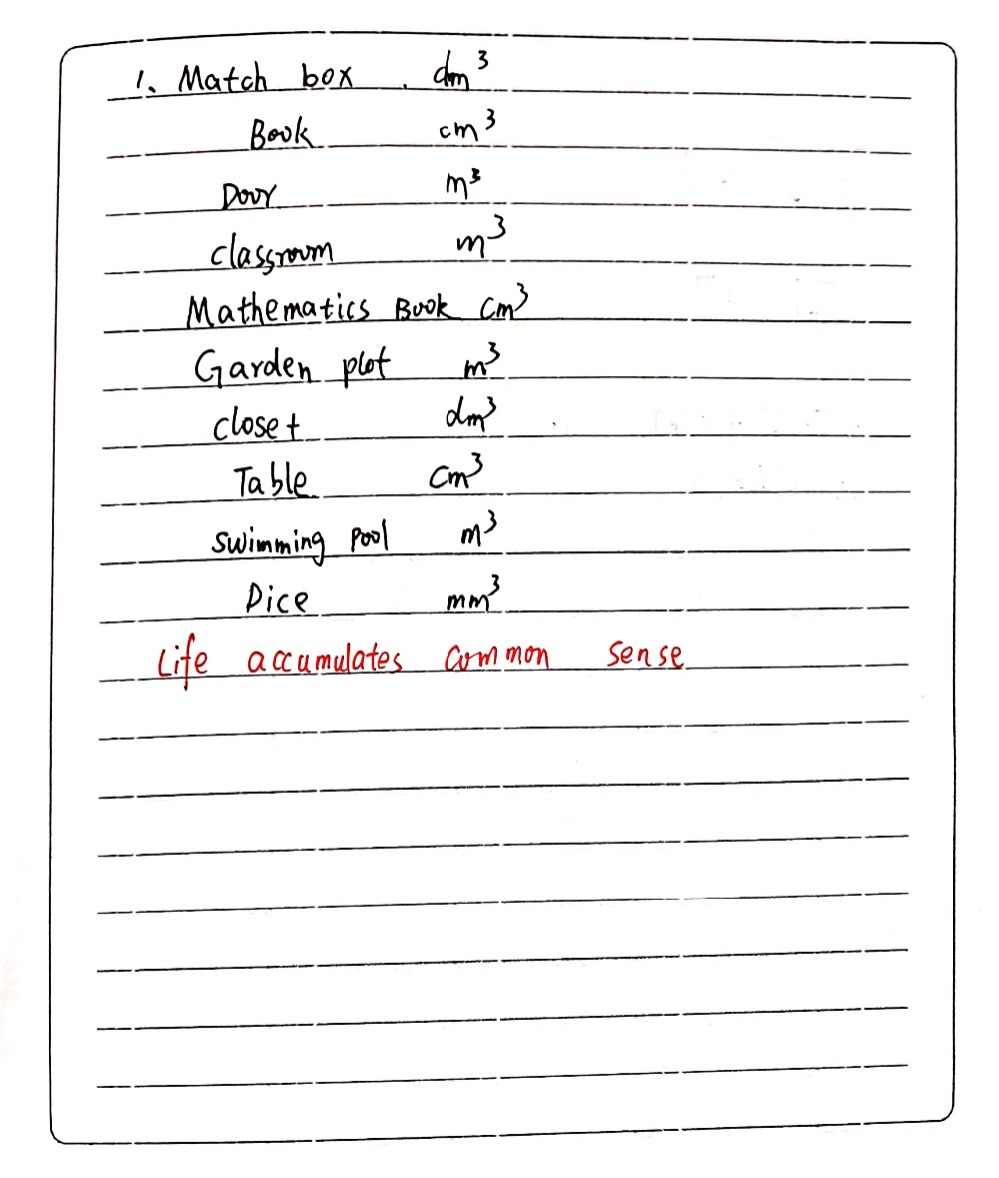 1、Match box . dm³
Book cm³
Door m³
classroom m³
Mathematics Book cm³
Garden plot m³
closet dm³
Table cm³
swimming pool m³
Dice mm³
Life accumulates common sense